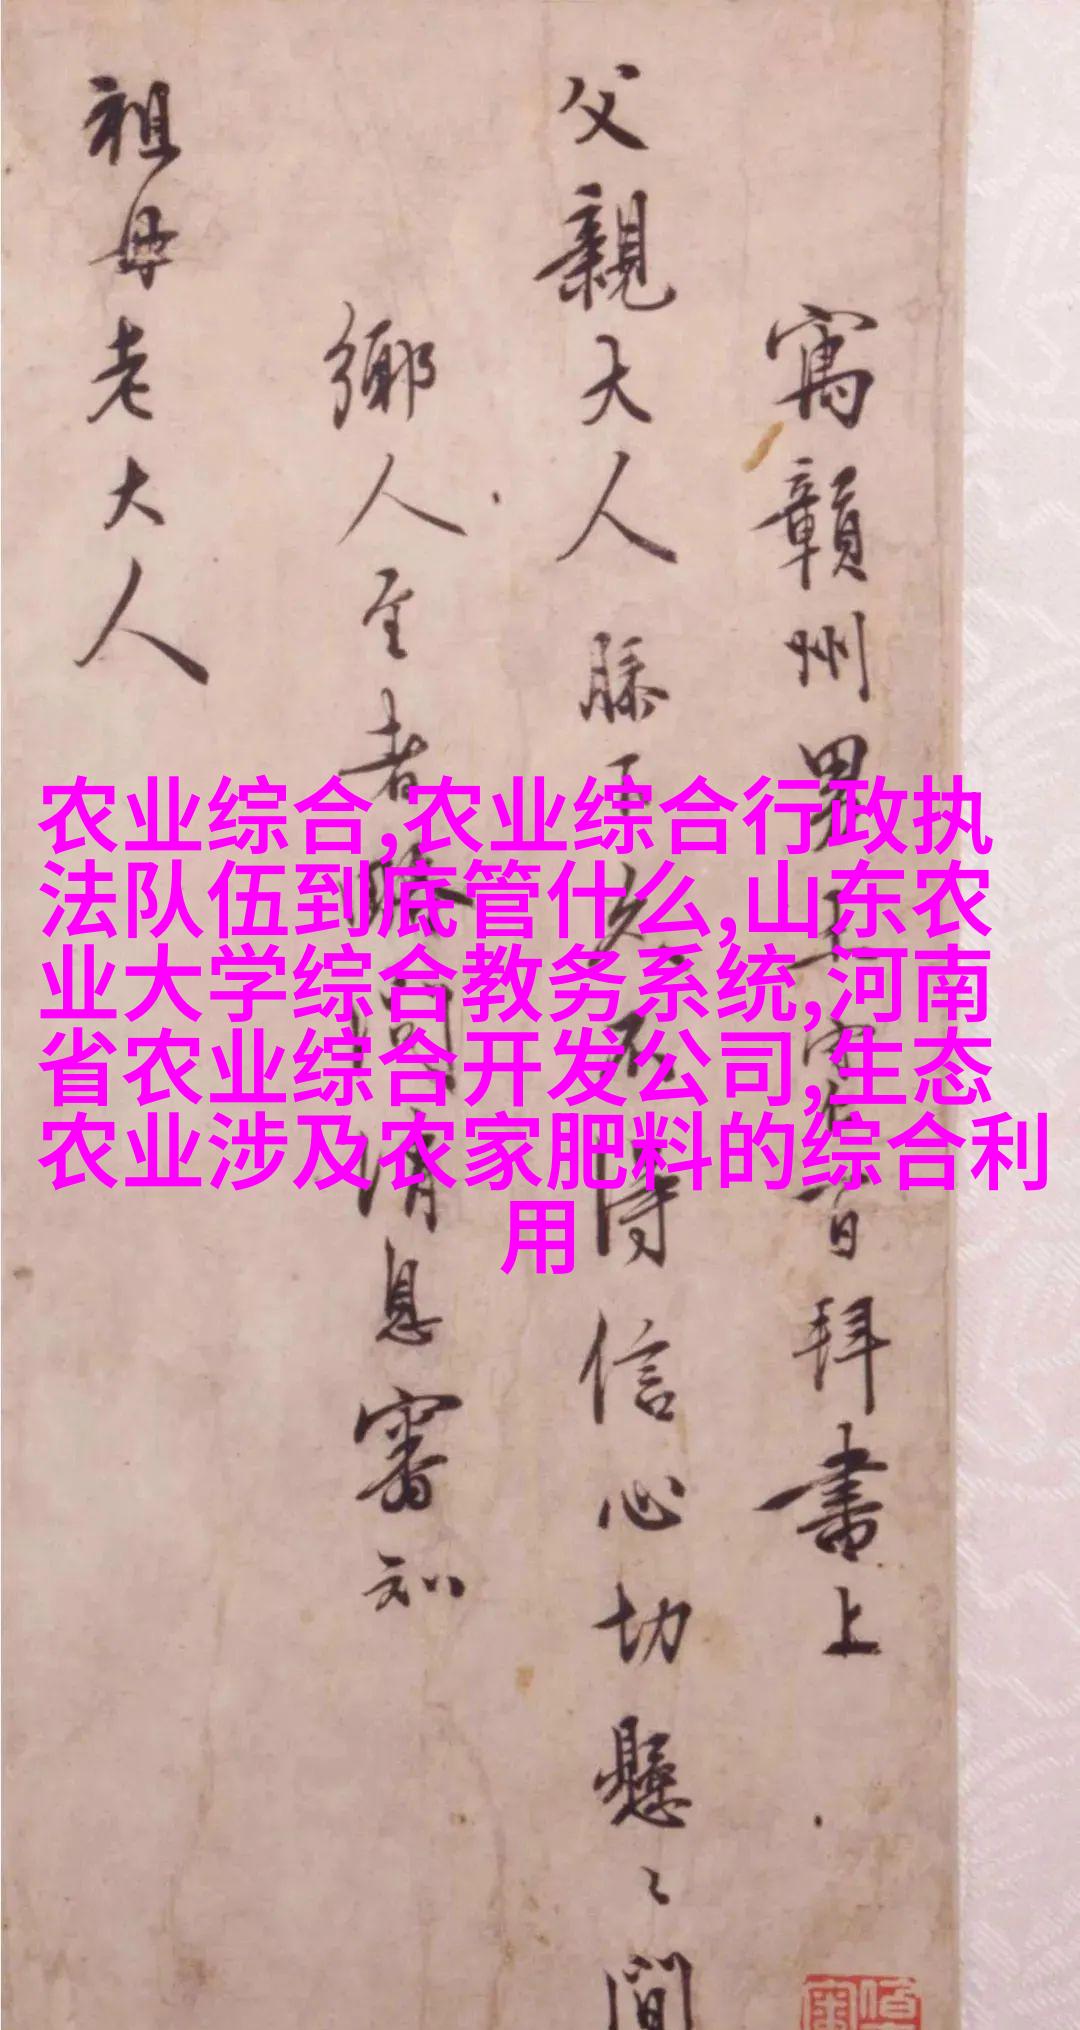 寓贛州男王守仁百拜書上
父親大人膝下久不得信心切懸〻間
鄉人至者略問消息審知
祖母老大人
农业综合,农业综合行政执
法队伍到底管什么,山东农
业大学综合教务系统,河南
省农业综合开发公司,生态
农业涉及农家肥料的综合利
用